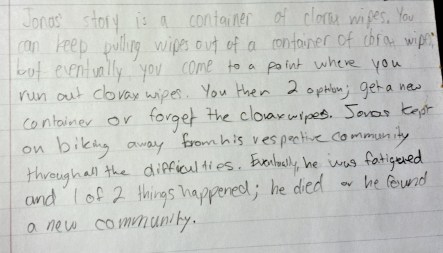 Jonas' story is a container of clorax wipes. You
can keep pulling wipes out of a container of clorax wipes,
but eventually you come to a point where you
run out clorax wipes. You then 2 option; get a new
container or forget the cloraxwipes. Jonas kept
on biking away from his respective community
through all the difficulties. Eventually, he was fatigued
and 1 of 2 things happened; he died or he found
a new community.